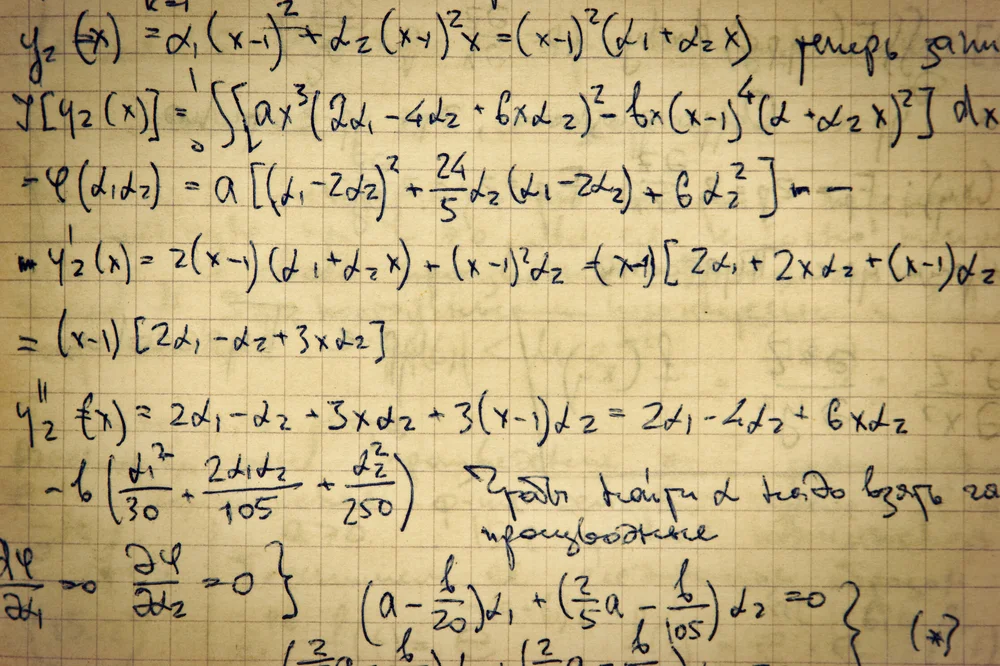 y₂(x) = α₁(x-1)² + α₂(x-1)²x = (x-1)²(α₁+α₂x) теперь
J[y₂(x)] = ∫₀¹ [ax³(2α₁-4α₂+6xα₂)² - bx(x-1)⁴(α+α₂x)²] dx
= φ(α₁α₂) = a[(α₁-2α₂)² + 24/5 α₂(α₁-2α₂) + 6α₂²] - -
y₂'(x) = 2(x-1)(α₁+α₂x) + (x-1)²α₂ = (x-1)[2α₁+2xα₂+(x-1)α₂
= (x-1)[2α₁-α₂+3xα₂]
y₂''(x) = 2α₁-α₂+3xα₂+3(x-1)α₂ = 2α₁-4α₂+6xα₂
-b(α₁²/30 + 2α₁α₂/105 + α₂²/250) Чтобы найти α надо взять
производные
∂φ/∂α₁ = 0 ∂φ/∂α₂ = 0 } (a - b/20)α₁ + (2/5 a - b/105)α₂ = 0 } (*)